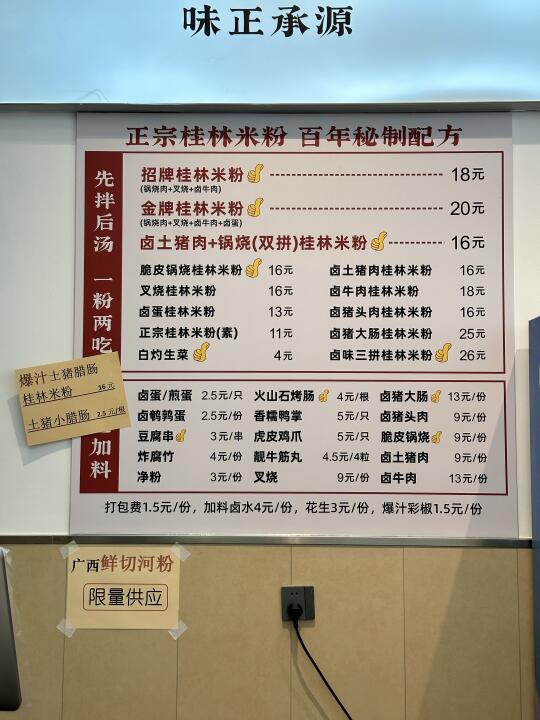 味正承源
正宗桂林米粉 百年秘制配方
先拌后汤 一粉两吃
招牌桂林米粉 18元
(锅烧肉+叉烧+卤牛肉)
金牌桂林米粉 20元
(锅烧肉+叉烧+卤牛肉+卤蛋)
卤土猪肉+锅烧(双拼)桂林米粉 16元
脆皮锅烧桂林米粉 16元 卤土猪肉桂林米粉 16元
叉烧桂林米粉 16元 卤牛肉桂林米粉 18元
卤蛋桂林米粉 13元 卤猪头肉桂林米粉 16元
正宗桂林米粉(素) 11元 卤猪大肠桂林米粉 25元
白灼生菜 4元 卤味三拼桂林米粉 26元
爆汁土猪腊肠
桂林米粉 16元
土猪小腊肠 2.5元/根
加料
卤蛋/煎蛋 2.5元/只 火山石烤肠 4元/根 卤猪大肠 13元/份
卤鹌鹑蛋 2.5元/份 香糯鸭掌 5元/只 卤猪头肉 9元/份
豆腐串 3元/串 虎皮鸡爪 5元/只 脆皮锅烧 9元/份
炸腐竹 4元/份 靓牛筋丸 4.5元/4粒 卤土猪肉 9元/份
净粉 3元/份 叉烧 9元/份 卤牛肉 13元/份
打包费1.5元/份，加料卤水4元/份，花生3元/份，爆汁彩椒1.5元/份
广西鲜切河粉
限量供应